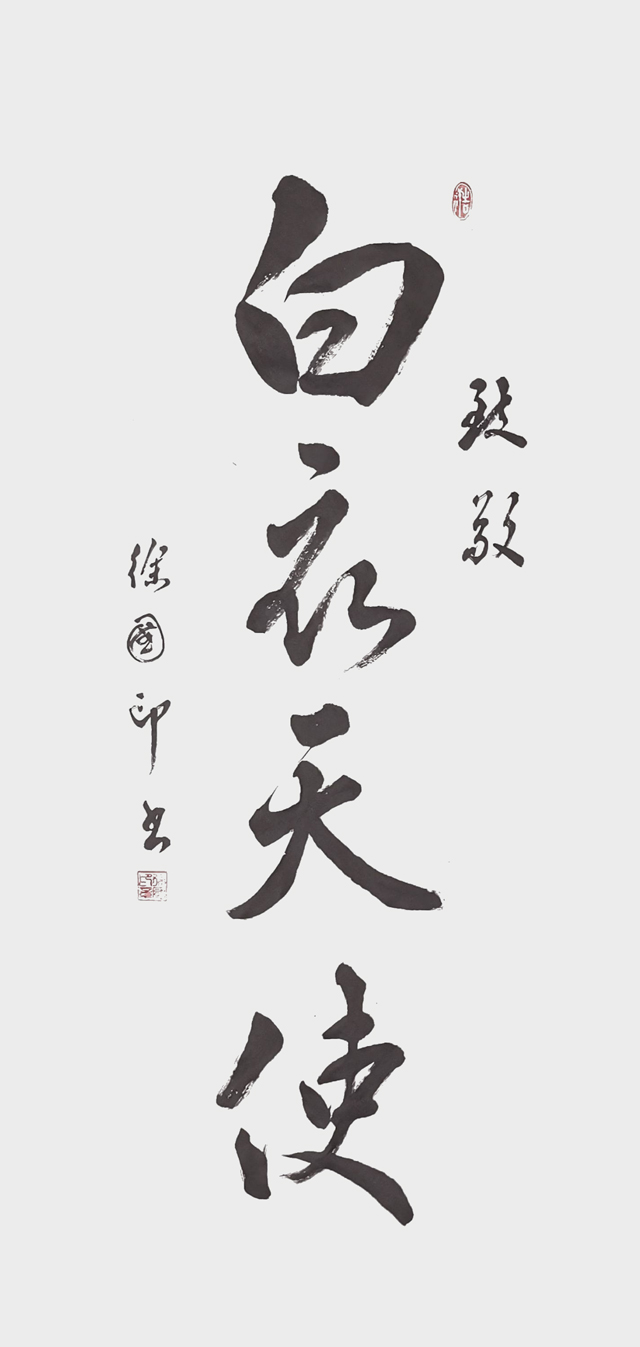 致敬
白衣天使
徐國印书